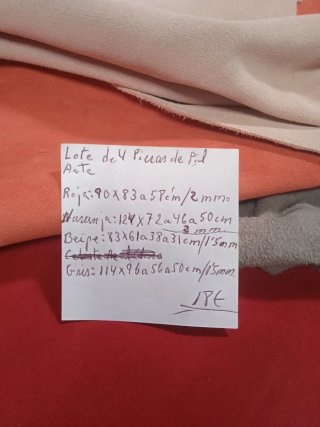 Lote de 4 Piezas de Piel
Ante
Roja: 90 x 83 a 58 cm / 2 mm
Naranja: 124 x 72 a 46 a 50 cm
2 mm
Beige: 83 x 61 a 38 a 31 cm / 1'5 mm
Gris: 114 x 96 a 56 a 50 cm / 1'5 mm
18€